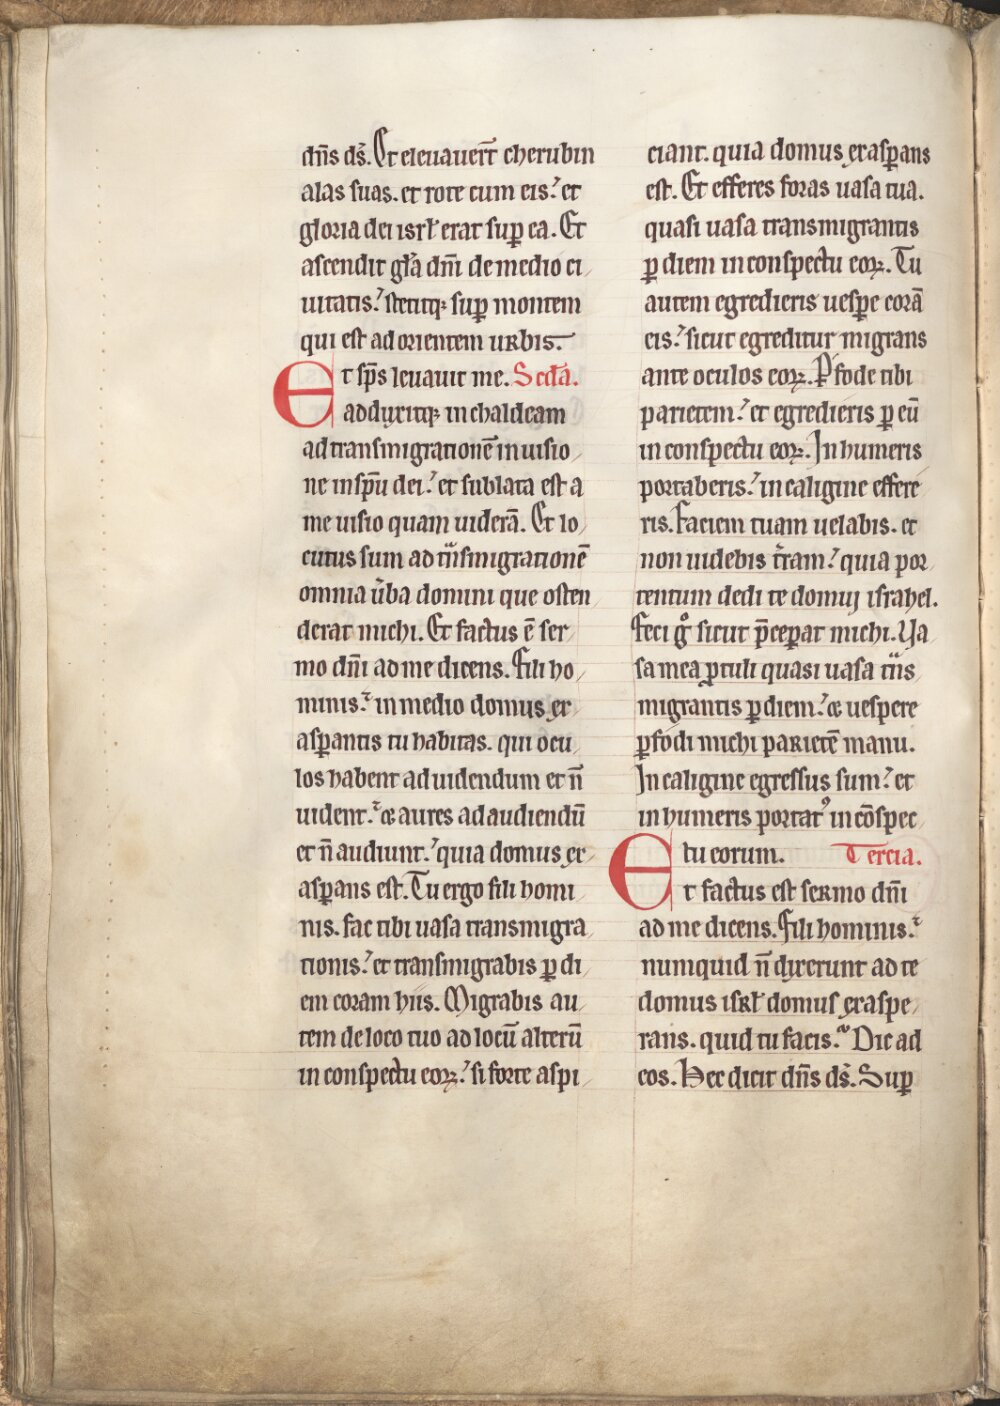 dn̄s ds̄. Et eleuauer̄t cherubin
alas suas. et rote cum eis.ʼ et
gloria dei isrł erat suꝑ ea. Et
ascendit gl̄a dn̄i de medio ci
uitatis.ʼ stetitqꝫ suꝑ montem
qui est ad orientem urbis.
Et sp̄s leuauit me. Scd̄a.
adduxitqꝫ in chaldeam
ad transmigrationē in uisio
ne in sp̄u dei.ʼ et sublata est a
me uisio quam uiderā. Et lo
cutus sum ad tᷓnsmigrationē
omnia u̅ba domini que osten
derat michi. Et factus ē ser
mo dn̄i ad me dicens. Fili ho
minis.ʼ in medio domus ex
asꝑantis tu habitas. qui ocu
los habent ad uidendum et n̄
uident.ʼ & aures ad audiendū
et n̄ audiunt.ʼ quia domus ex
asꝑans est. Tu ergo fili homi
nis. fac tibi uasa transmigra
tionis.ʼ et transmigrabis ꝑ di
em coram hiis. Migrabis au
tem de loco tuo ad locū alterū
in conspectu eoꝝ.ʼ si forte aspi
ciant. quia domus exasꝑans
est. Et efferes foras uasa tua.
quasi uasa transmigrantis
ꝑ diem in conspectu eoꝝ. Tu
autem egredieris uesꝑe corā
eis.ʼ sicut egreditur migrans
ante oculos eoꝝ. Ꝑfode tibi
parietem.ʼ et egredieris ꝑ eū
in conspectu eoꝝ. In humeris
portaberis.ʼ in caligine effere
ris. Faciem tuam uelabis. et
non uidebis t̄ram.ʼ quia por
tentum dedi te domui israhel.
Feci gͦ sicut p̄ceꝑat michi. Va
sa mea ꝓtuli quasi uasa tᷓns
migrantis ꝑ diem.ʼ & uespere
ꝑfodi michi parietē manu.
In caligine egressus sum.ʼ et
in humeris portatꝰ in cōspec
tu eorum. Tercia.
Et factus est sermo dn̄i
ad me dicens. Fili hominis.ʼ
numquid n̄ dixerunt ad te
domus isrł domus exaspe
rans. quid tu facis.ʼ Dic ad
eos. Hec dicit dn̄s ds̄. Suꝑ